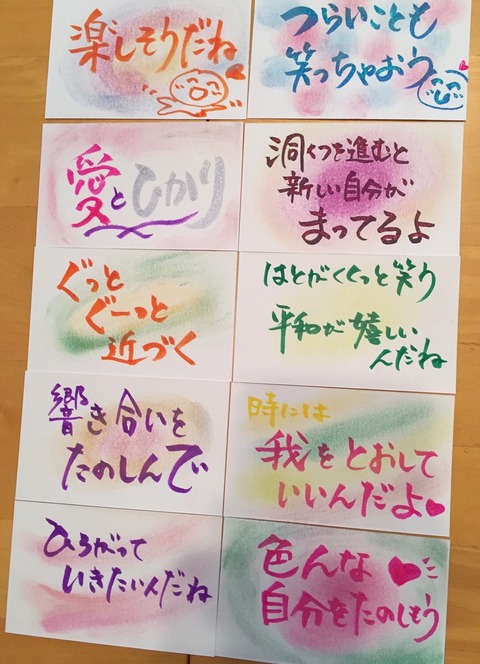 楽しそうだね
つらいことも
笑っちゃおう
愛とひかり
洞くつを進むと
新しい自分が
まってるよ
ぐっと
ぐーっと
近づく
はとがくくっと笑う
平和が嬉しい
んだね
響き合いを
たのしんで
時には
我をとおして
いいんだよ
ひろがって
いきたいんだね
色んな
自分をたのしもう